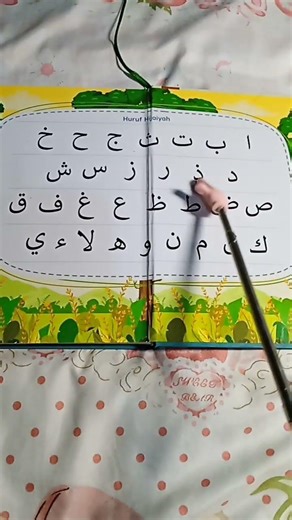 Huruf Hijaiyah
ا ب ت ث ج ح خ
د ذ ر ز س ش
ص ض ط ظ ع غ ف ق
ك ل م ن و ه لا ء ي
SWEET